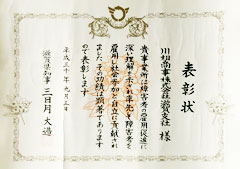 表彰状
川相商事株式会社滋賀支店 様
貴事業所は障害者の雇用促進に
深い理解を示され率先して障害者を
雇用し社会参加と自立に貢献され
ました その功績は顕著であります
ので表彰します
平成三十年九月三日
滋賀県知事 三日月 大造